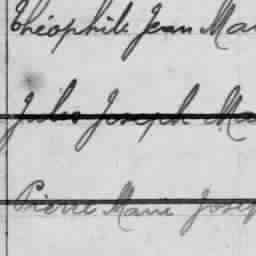 Théophile Jean Ma
Jules Joseph Ma
Pierre Marie Josep